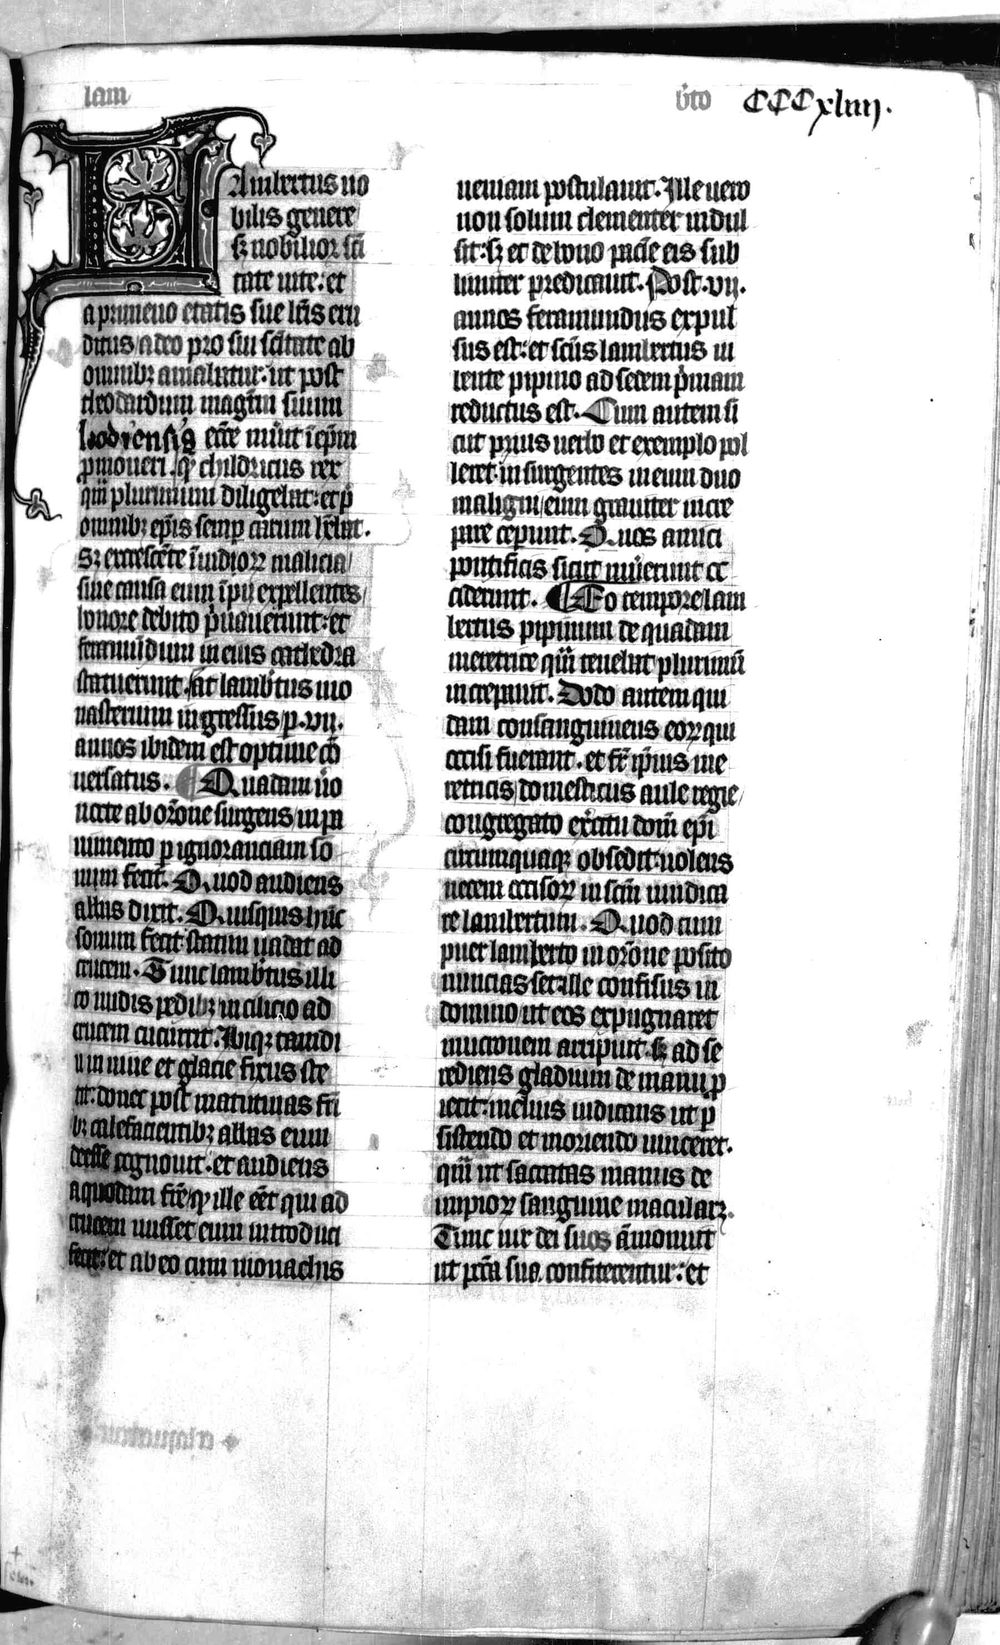 lam
b̾to CCCxliiij.
LAmbertus no
bilis genere
sꝫ nobilior scī
tate uite: et
a primeuo etatis sue lr̄is eru
ditus adeo pro sui scītate ab
omnibꝫ amabatur: ut post
theodardum magr̄m suum
leodiensis ecc̄e mūit i ep̄m
ꝓmoueri. qꝫ childricus rex
quē plurimum diligebat: et p̄
omnibꝫ ep̄is semꝑ carum h̄ebat.
Sꝫ excrescēte īuidioꝝ malicia
siue causa eum īpii expellentes
honore debito p̄uauerunt: et
feramūdum in eius cathedra
statuerunt. At lamb̾tus mo
nasterium ingressus ꝑ .vij.
annos ibidem est optime cō
uersatus. Quadam u̾o
nocte ab or̄one surgens in pa
uimento ꝑ ignoranciam so
num fecit. Quod audiens
abbas dixit. Quisquis hūc
sonum fecit statim uadat ad
crucem. Tunc lamb̾tus illi
co nudis pedibꝫ in cilicio ad
crucem cucurrit. Ibiqꝫ tamdi
u in niue et glacie fixus ste
tit: donec post matutinas fr̄i
bꝫ calefacientibꝫ abbas eum
deesse cognouit: et audiens
a quodam fr̄e qꝫ ille eēt qui ad
crucem iuisset eum introduci
fecit: et ab eo cum monachis
ueniam postulauit. Ille uero
non solum clementer indul
sit: sꝫ et de bono pacīe eis sub
limiter predicauit. Post .vij.
annos feramundus expul
sus est: et scūs lambertus iu
bente pipino ad sedem p̄mam
reductus est. Cum autem si
cut prius uerbo et exemplo pol
leret insurgentes in eum duo
maligni eum grauiter incre
pare ceperunt. Quos amici
pontificis sicut mūerunt oc
ciderunt. Eo tempore lam
bertus pipinum de quadam
meretrice quā tenebat plurimū
increpauit. Dodo autem qui
dam consanguineus eoꝝ qui
occisi fuerant. et fr̄ ip̄ius me
retricis domesticus aule regie
congregato ex̾citu domū ep̄i
circumquaqꝫ obsedit: uolens
necem occisoꝝ in scm̄ uindica
re lambertum. Quod cum
puer lamberto in or̄one posito
nunciasset: ille confisus in
domino ut eos expugnaret
mucronem arripuit. sꝫ ad se
rediens gladium de manu ꝓ
iecit: melius iudicans ut ꝑ
sistendo et moriendo uinceret.
quā ut sacratas manus de
impioꝝ sanguine macularꝫ.
Tunc uir dei suos āmonuit
ut pcc̄a sua confiterentur: et